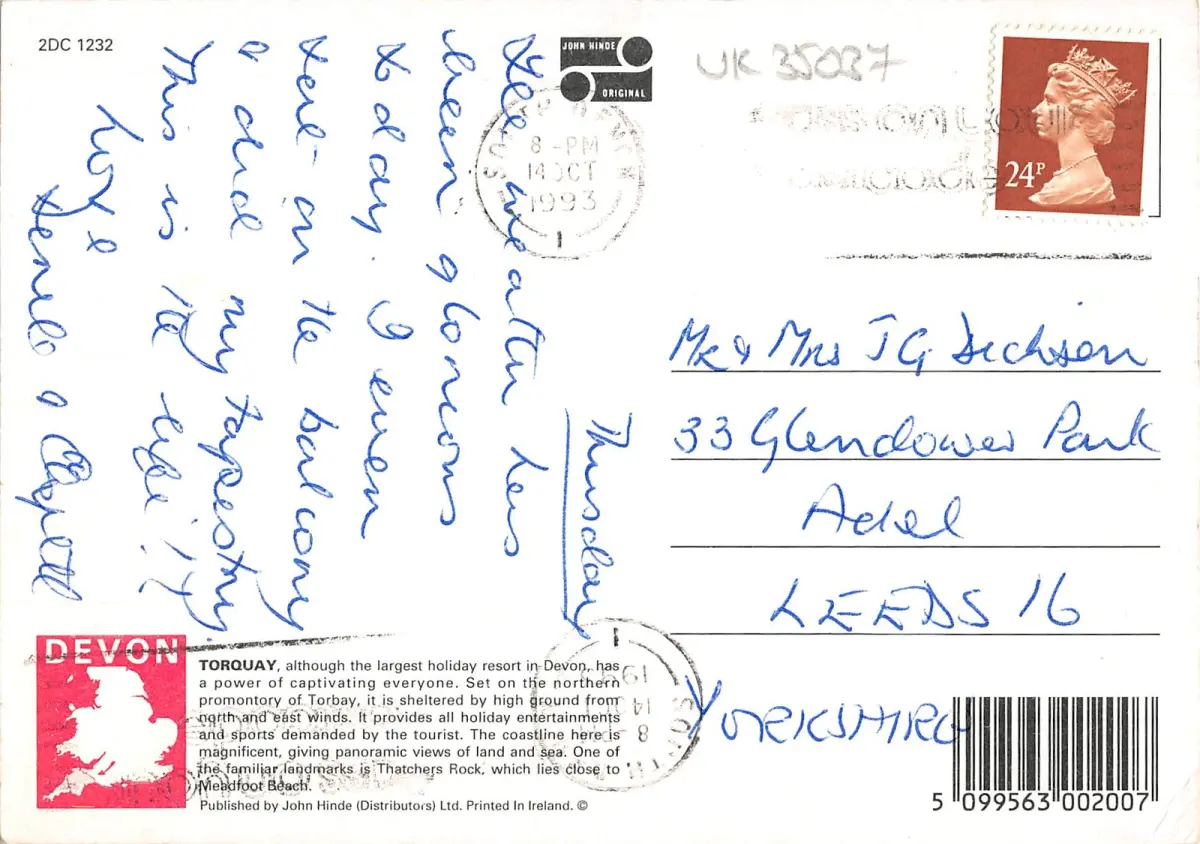 2DC 1232
JOHN HINDE
ORIGINAL
UK 35037
8 -PM
14 OCT
1993
24P
Thursday
The weather has
been glorious
today. I even
sat on the balcony
& did my tapestry.
This is the life!!
Love
Mr & Mrs J G Dickson
33 Glendower Park
Adel
LEEDS 16
YORKSHIRE
DEVON
TORQUAY, although the largest holiday resort in Devon, has
a power of captivating everyone. Set on the northern
promontory of Torbay, it is sheltered by high ground from
north and east winds. It provides all holiday entertainments
and sports demanded by the tourist. The coastline here is
magnificent, giving panoramic views of land and sea. One of
the familiar landmarks is Thatchers Rock, which lies close to
Meadfoot Beach.
Published by John Hinde (Distributors) Ltd. Printed In Ireland. ©
5 099563 002007